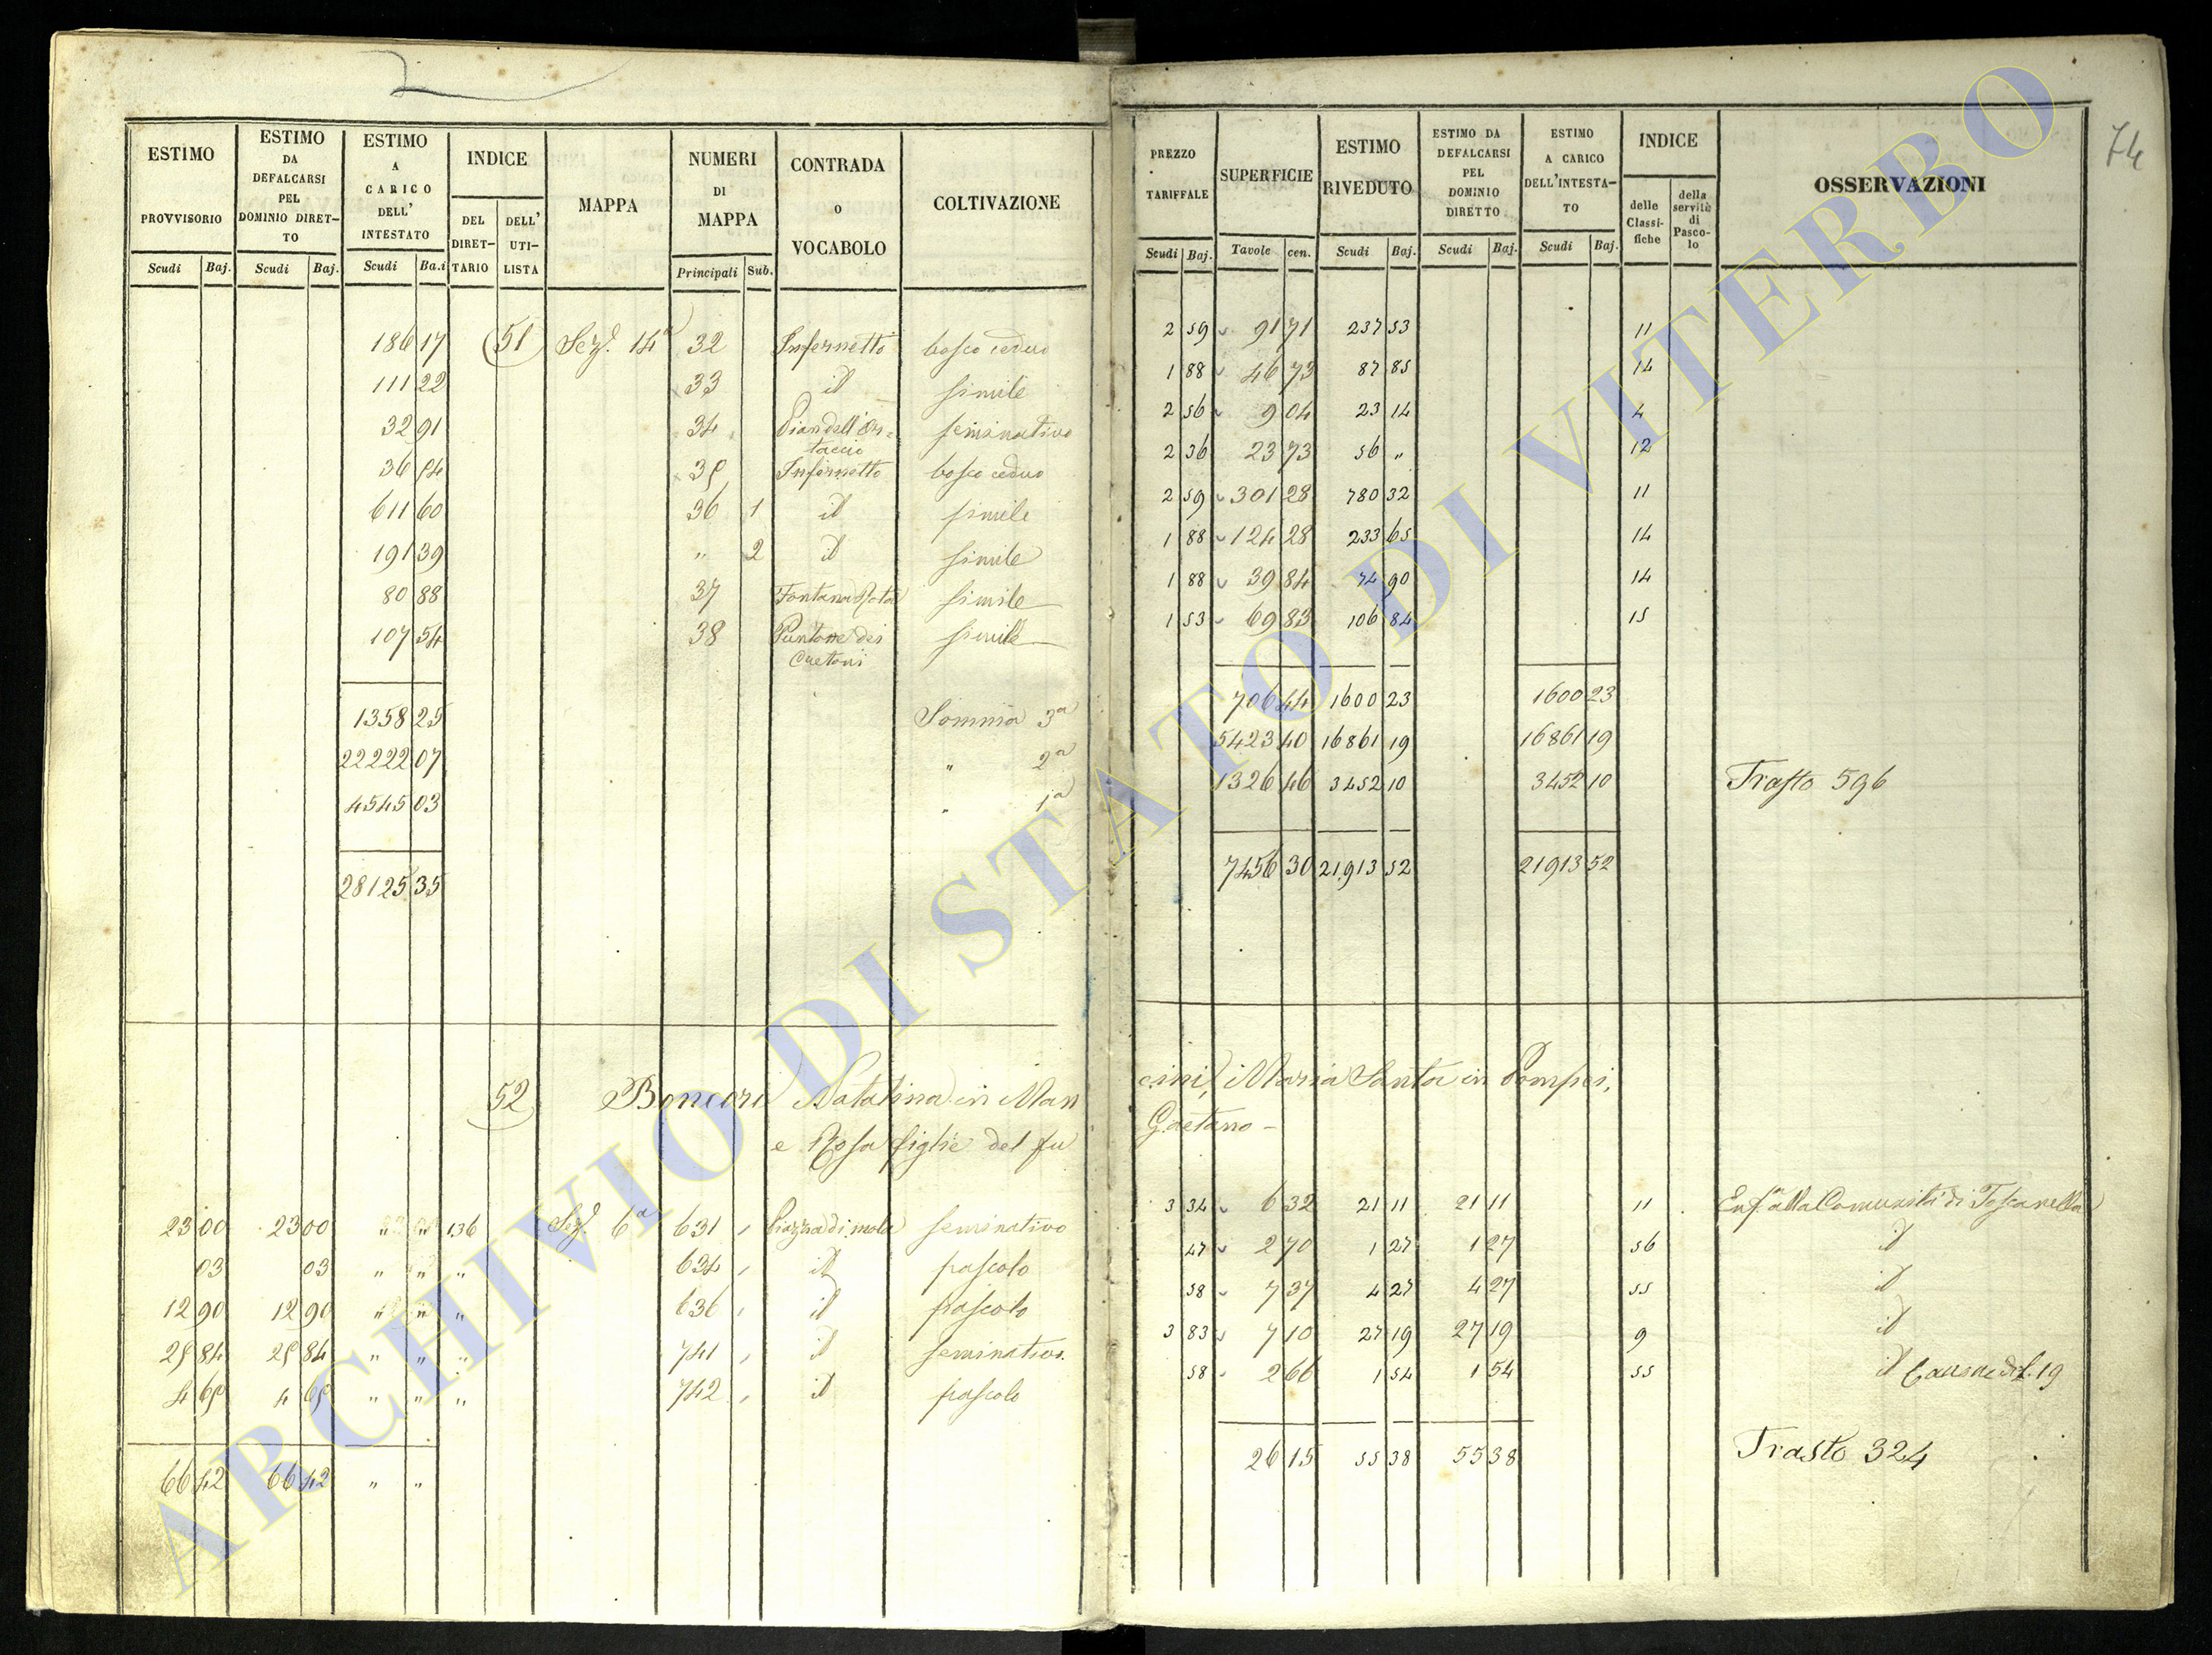 74
ESTIMO PROVVISORIO Scudi Baj.
ESTIMO DA DEFALCARSI PEL DOMINIO DIRETTO Scudi Baj.
ESTIMO A CARICO DELL' INTESTATO Scudi Ba.i
INDICE DEL DIRETTARIO DELL' UTILISTA
MAPPA
NUMERI DI MAPPA Principali Sub.
CONTRADA O VOCABOLO
COLTIVAZIONE
PREZZO TARIFFALE Scudi Baj.
SUPERFICIE Tavole cen.
ESTIMO RIVEDUTO Scudi Baj.
ESTIMO DA DEFALCARSI PEL DOMINIO DIRETTO Scudi Baj.
ESTIMO A CARICO DELL'INTESTATO Scudi Baj.
INDICE delle Classifiche della servitù di Pascolo
OSSERVAZIONI
186 17 51 Sez. 14a 32 Infernetto bosco ceduo 2 59 91 71 237 53 11
111 22 33 id simile 1 88 46 73 87 85 14
32 91 34 Pian dell'Ortaccio seminativo 2 56 9 04 23 14 4
36 54 35 Infernetto bosco ceduo 2 36 23 73 56 " 12
611 60 36 1 id simile 2 59 301 28 780 32 11
191 39 " 2 id simile 1 88 124 28 233 65 14
80 88 37 Fontana simile 1 88 39 84 74 90 14
107 54 38 Puntone dei Caetani simile 1 53 69 83 106 84 15
1358 25 Somma 3a 706 44 1600 23 1600 23
22222 07 " 2a 5423 40 16861 19 16861 19
4545 03 " 1a 1326 46 3452 10 3452 10 Trasto 596
28125 35 7456 30 21913 52 21913 52
52 Boncori Natalina in Mancini, Maria Santa in Pompei,
e Rosa figlie del fu Gaetano -
23 00 23 00 " " 136 Sez. 6a 631 Piazza di mola seminativo 3 34 6 32 21 11 21 11 11 Enf. alla Comunità di Toscanella
03 03 " " " 634 id pascolo 47 2 70 1 27 1 27 56 id
12 90 12 90 " " " 636 id pascolo 58 7 37 4 27 4 27 55 id
25 84 25 84 " " " 741 id seminativo 3 83 7 10 27 19 27 19 9 id
4 65 4 65 " " " 742 id pascolo 58 2 66 1 54 1 54 55 id 19
66 42 66 42 " " 26 15 55 38 55 38 Trasto 324
ARCHIVIO DI STATO DI VITERBO